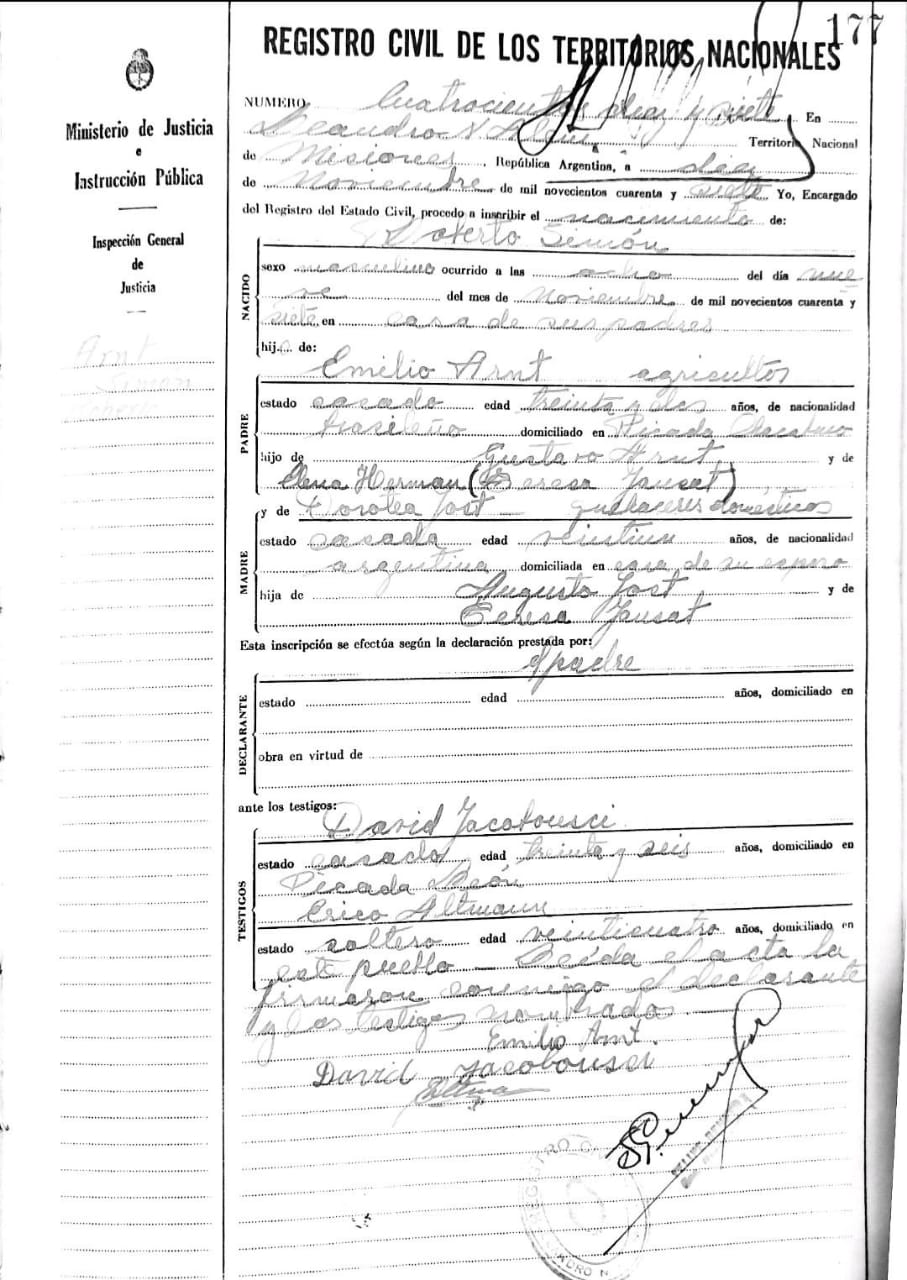 177
REGISTRO CIVIL DE LOS TERRITORIOS NACIONALES
Ministerio de Justicia
e
Instrucción Pública
Inspección General
de
Justicia
Arnt
NUMERO Cuatrocientos diez y siete En
Leandro N. Alem, Territorio Nacional
de Misiones, República Argentina, a diez
de Noviembre de mil novecientos cuarenta y siete Yo, Encargado
del Registro del Estado Civil, procedo a inscribir el nacimiento de:
Roberto Simón
NACIDO
sexo masculino ocurrido a las ocho del día nue
ve del mes de Noviembre de mil novecientos cuarenta y
siete en casa de sus padres
hij de:
Emilio Arnt agricultor
PADRE
estado casado edad treinta y dos años, de nacionalidad
brasileño domiciliado en Picada
hijo de Gustavo Arnt y de
Elena Herman (Teresa Jausat)
y de Dorotea Jost – quehaceres domésticos
MADRE
estado casada edad veintiun años, de nacionalidad
argentina domiciliada en casa de su esposo
hija de Augusto Jost y de
Teresa Jausat
Esta inscripción se efectúa según la declaración prestada por:
el padre
DECLARANTE
estado edad años, domiciliado en
obra en virtud de
ante los testigos:
David Jacobousci
TESTIGOS
estado casado edad treinta y seis años, domiciliado en
Picada León
Erico Altmann
estado soltero edad veinticuatro años, domiciliado en
este pueblo – Leída el acta la
firmaron conmigo el declarante
y los testigos nombrados
Emilio Arnt.
David Jacobousci
REGISTRO